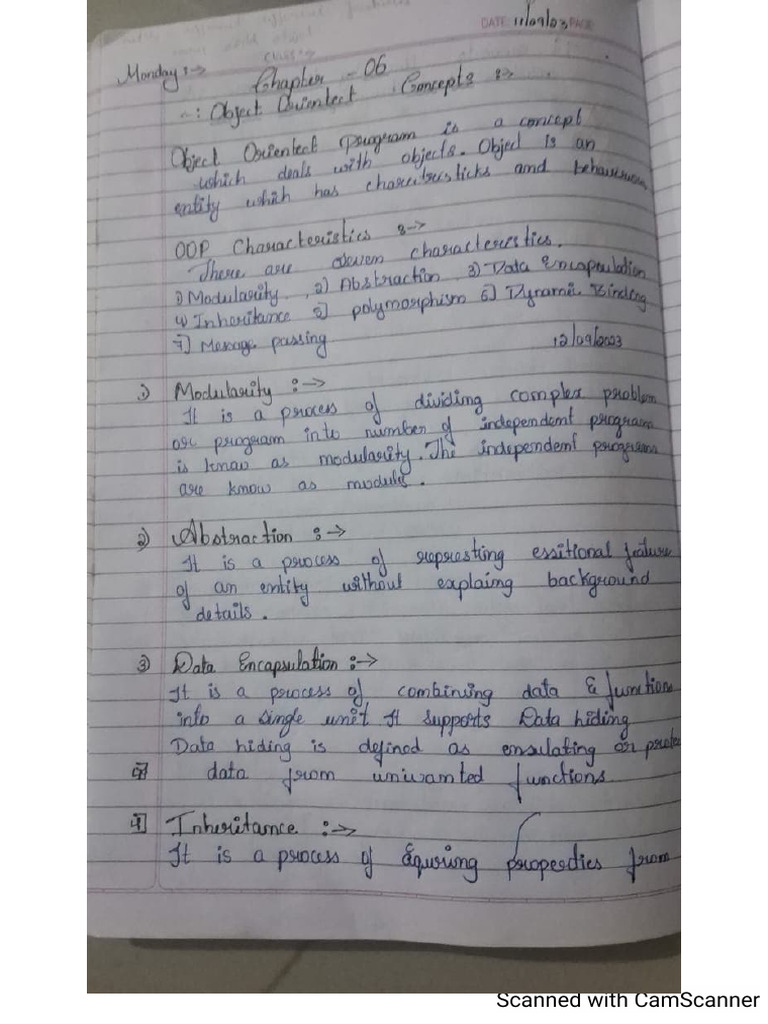 DATE 11/09/03 PAGE
Monday :->
Chapter - 06
-: Object Orientect Concepts :->
Object Orientect program is a concept
which deals with objects. Object is an
entity which has charecteristicks and
OOP Characteristics :->
There are seven characterestics.
1) Modularity, 2) Abstraction 3) Data Encapsulation
4) Inheritance 5] polymorphism 6] Dynamic Binding
7] Message passing 12/09/2003
1) Modularity :->
It is a process of dividing complex problem
or program into number of independent program
is know as modularity. The independent programs
are know as module.
2) Abstraction :->
It is a process of represting essitional feature
of an entity without explaing background
details.
3) Data Encapsulation :->
It is a process of combining data & function
into a single unit It supports Data hiding
Data hiding is defined as ensulating or
data from uniwanted functions
4] Inheritance :->
It is a process of Equring properties from
Scanned with CamScanner